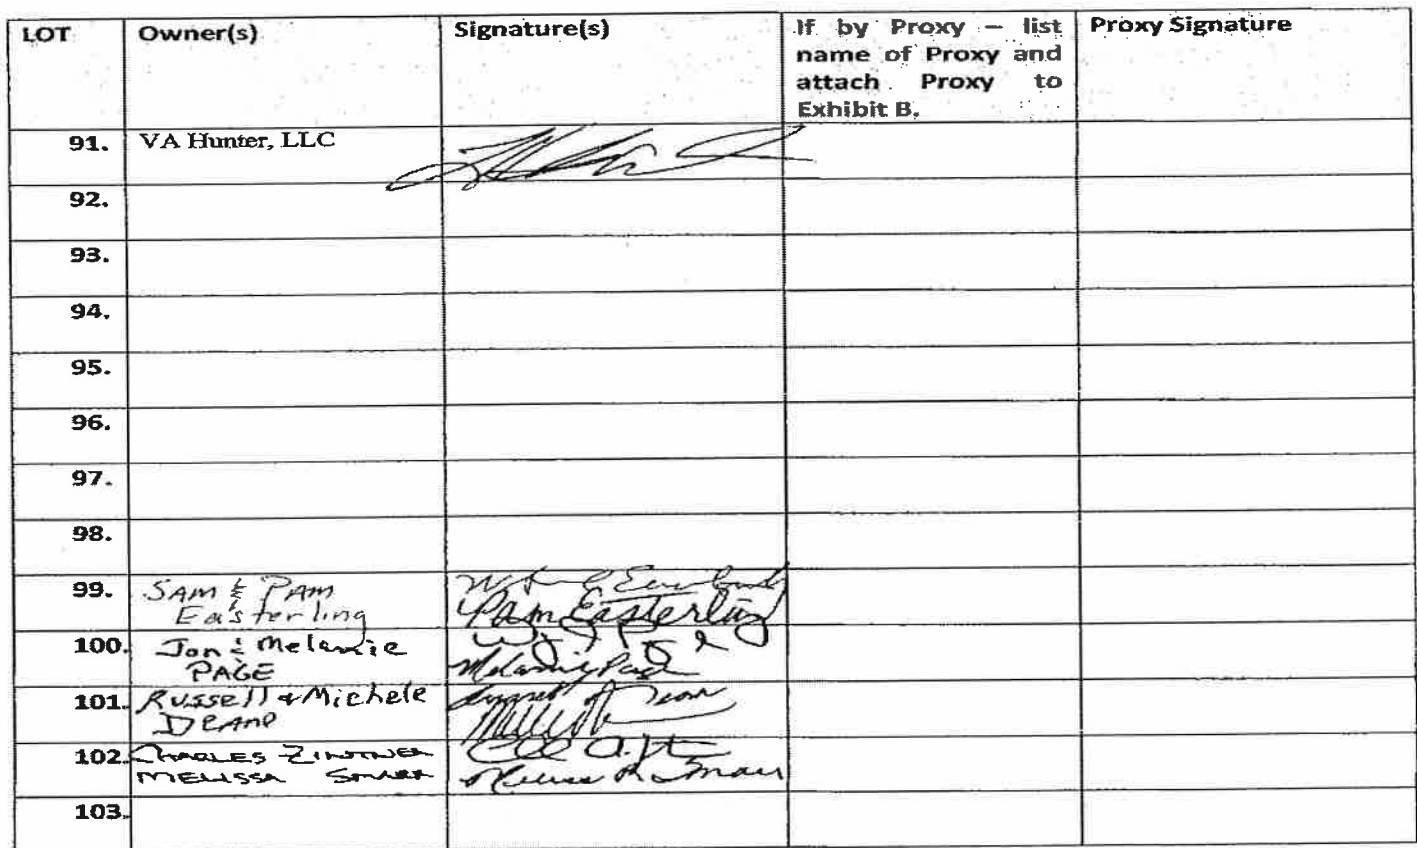 LOT Owner(s) Signature(s) If by Proxy – list name of Proxy and attach Proxy to Exhibit B. Proxy Signature
91. VA Hunter, LLC
92.
93.
94.
95.
96.
97.
98.
99. SAM & PAM
Easterling
Pam Easterling
100. Jon & Melanie
PAGE
Melanie Page
101. Russell & Michele
102. CHARLES
MELISSA
103.